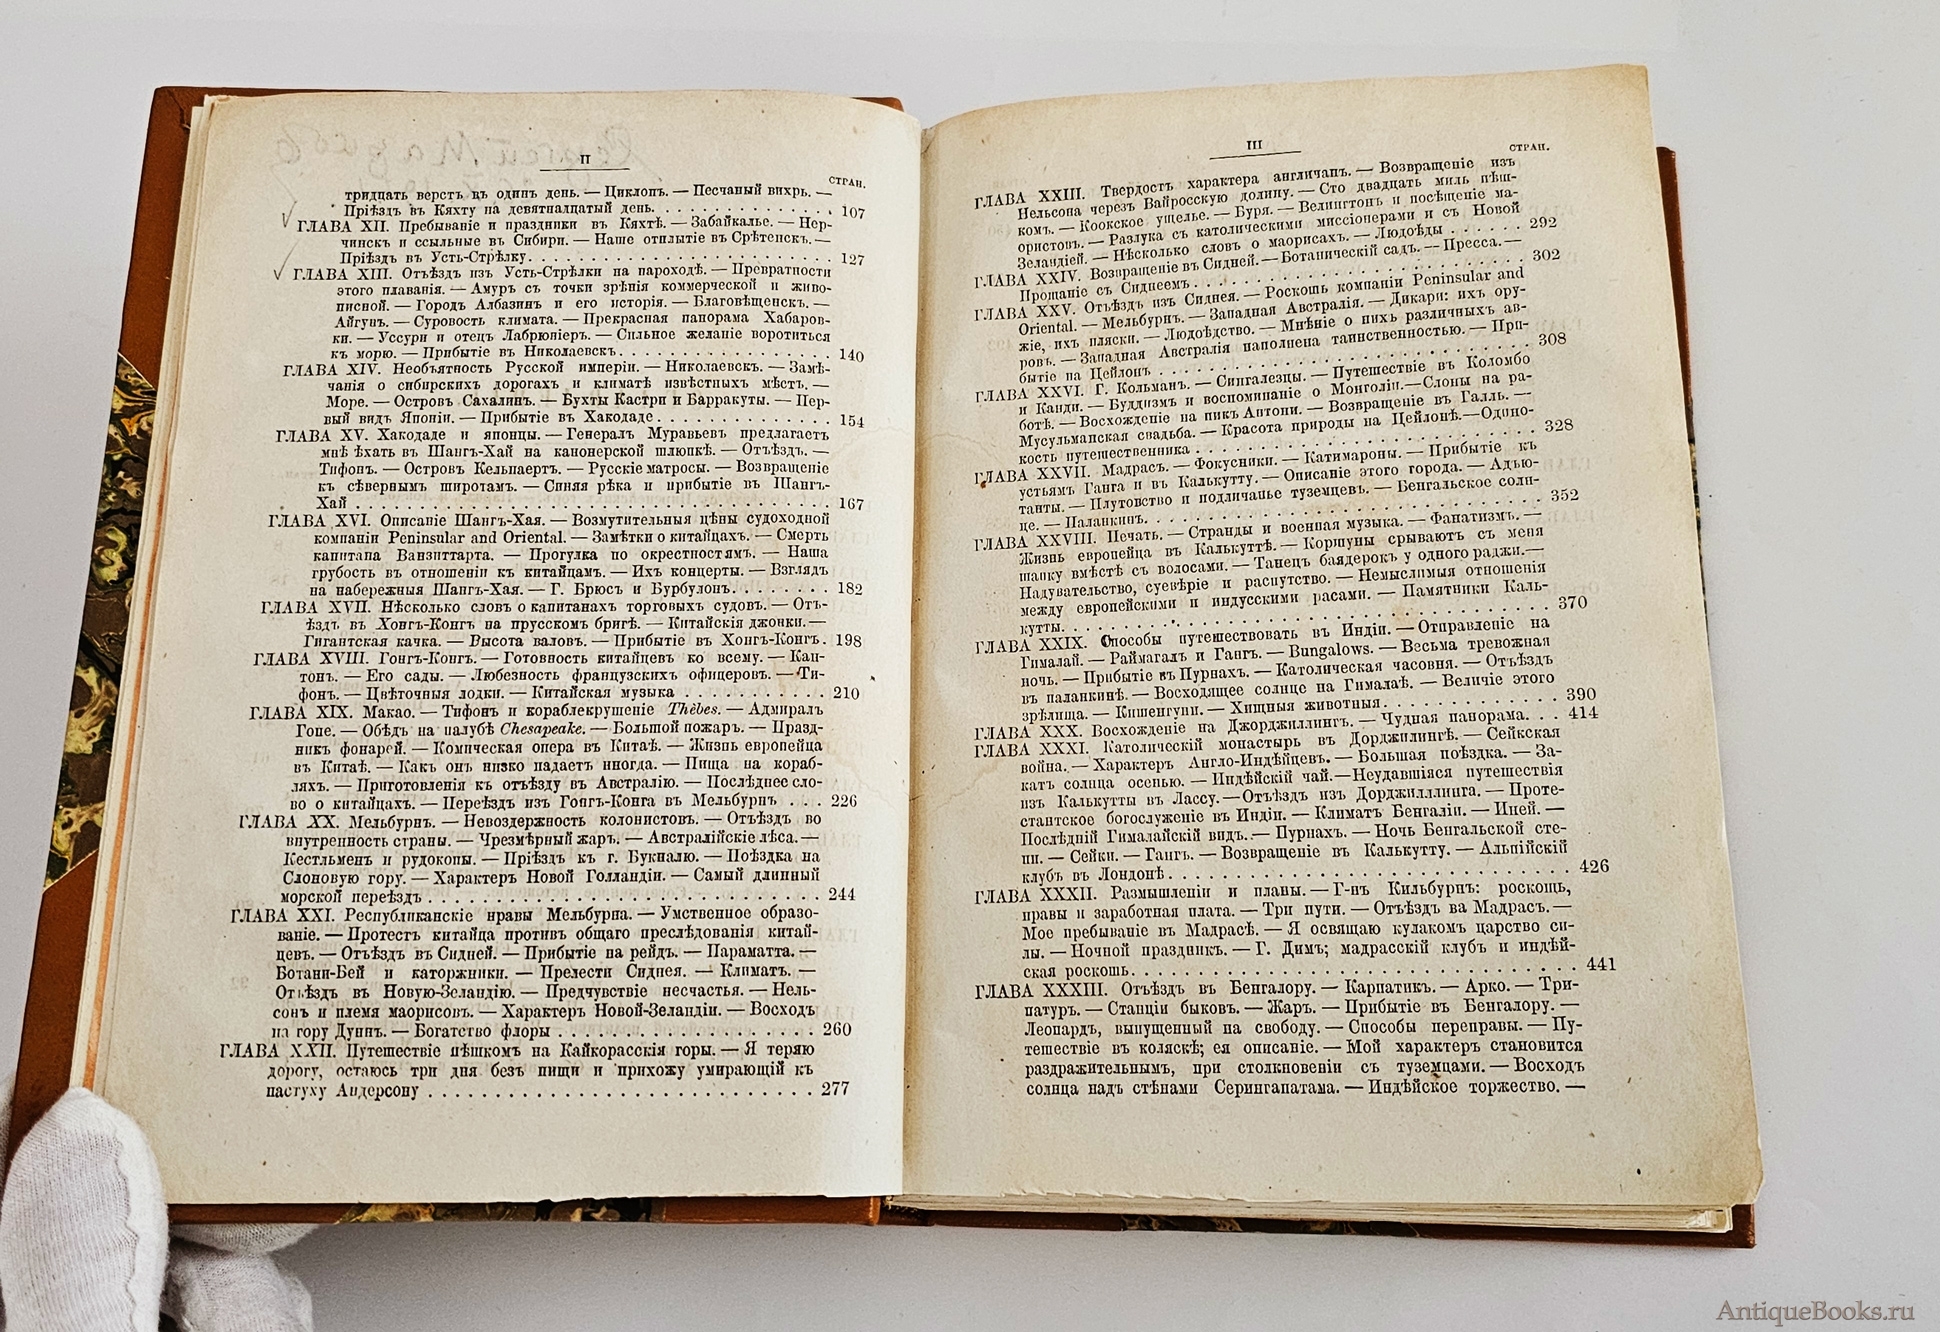 II
СТРАН.
тридцать верстъ въ одинъ день. — Циклопъ. — Песчаный вихрь. —
Пріѣздъ въ Кяхту на девятнадцатый день. . . . . . . . . . . . . . 107
ГЛАВА XII. Пребываніе и праздники въ Кяхтѣ. — Забайкалье. — Нер-
чинскъ и ссыльные въ Сибири. — Наше отплытіе въ Срѣтенскъ. —
Пріѣздъ въ Усть-Стрѣлку. . . . . . . . . . . . . . . . . . . . 127
ГЛАВА XIII. Отъѣздъ изъ Усть-Стрѣлки на пароходѣ. — Превратности
этого плаванія. — Амуръ съ точки зрѣнія коммерческой и живо-
писной. — Городъ Албазинъ и его исторія. — Благовѣщенскъ. —
Айгунъ. — Суровость климата. — Прекрасная панорама Хабаров-
ки. — Уссури и отецъ Лабрюніеръ. — Сильное желаніе воротиться
къ морю. — Прибытіе въ Николаевскъ. . . . . . . . . . . . . . 140
ГЛАВА XIV. Необъятность Русской имперіи. — Николаевскъ. — Замѣ-
чанія о сибирскихъ дорогахъ и климатѣ извѣстныхъ мѣстъ. —
Море. — Островъ Сахалинъ. — Бухты Кастри и Барракуты. — Пер-
вый видъ Японіи. — Прибытіе въ Хакодаде . . . . . . . . . . . 154
ГЛАВА XV. Хакодаде и японцы. — Генералъ Муравьевъ предлагаетъ
мнѣ ѣхать въ Шангъ-Хай на канонерской шлюпкѣ. — Отъѣздъ. —
Тифонъ. — Островъ Кельпаертъ. — Русскіе матросы. — Возвращеніе
къ сѣвернымъ широтамъ. — Синяя рѣка и прибытіе въ Шангъ-
Хай . . . . . . . . . . . . . . . . . . . . . . . . . . . . . 167
ГЛАВА XVI. Описаніе Шангъ-Хая. — Возмутительныя цѣны судоходной
компаніи Peninsular and Oriental. — Замѣтки о китайцахъ. — Смерть
капитана Ванзиттарта. — Прогулка по окрестностямъ. — Наша
грубость въ отношеніи къ китайцамъ. — Ихъ концерты. — Взглядъ
на набережныя Шангъ-Хая. — Г. Брюсъ и Бурбулонъ. . . . . . . 182
ГЛАВА XVII. Нѣсколько словъ о капитанахъ торговыхъ судовъ. — Отъ-
ѣздъ въ Хонгъ-Конгъ на прусскомъ бригѣ. — Китайскія джонки. —
Гигантская качка. — Высота валовъ. — Прибытіе въ Хонгъ-Конгъ. 198
ГЛАВА XVIII. Гонгъ-Конгъ. — Готовность китайцевъ ко всему. — Кан-
тонъ. — Его сады. — Любезность французскихъ офицеровъ. — Ти-
фонъ. — Цвѣточныя лодки. — Китайская музыка . . . . . . . . . 210
ГЛАВА XIX. Макао. — Тифонъ и кораблекрушеніе Thèbes. — Адмиралъ
Гопе. — Обѣдъ на палубѣ Chesapeake. — Большой пожаръ. — Празд-
никъ фонарей. — Комическая опера въ Китаѣ. — Жизнь европейца
въ Китаѣ. — Какъ онъ низко падаетъ иногда. — Пища на кораб-
ляхъ. — Приготовленія къ отъѣзду въ Австралію. — Послѣднее сло-
во о китайцахъ. — Переѣздъ изъ Гонгъ-Конга въ Мельбурнъ . . . 226
ГЛАВА XX. Мельбурнъ. — Невоздержность колонистовъ. — Отъѣздъ во
внутренность страны. — Чрезмѣрный жаръ. — Австралійскіе лѣса. —
Кестльменъ и рудокопы. — Пріѣздъ къ г. Букналю. — Поѣздка на
Слоновую гору. — Характеръ Новой Голландіи. — Самый длинный
морской переѣздъ . . . . . . . . . . . . . . . . . . . . . . . 244
ГЛАВА XXI. Республиканскіе нравы Мельбурна. — Умственное образо-
ваніе. — Протестъ китайца противъ общаго преслѣдованія китай-
цевъ. — Отъѣздъ въ Сидней. — Прибытіе на рейдъ. — Параматта. —
Ботани-Бей и каторжники. — Прелести Сиднея. — Климатъ. —
Отъѣздъ въ Новую-Зеландію. — Предчувствіе несчастья. — Нель-
сонъ и племя маорисовъ. — Характеръ Новой-Зеландіи. — Восходъ
на гору Дунпъ. — Богатство флоры . . . . . . . . . . . . . . . 260
ГЛАВА XXII. Путешествіе пѣшкомъ на Кайкорасскія горы. — Я теряю
дорогу, остаюсь три дня безъ пищи и прихожу умирающій къ
пастуху Андерсону . . . . . . . . . . . . . . . . . . . . . . . 277
III
СТРАН.
ГЛАВА XXIII. Твердость характера англичанъ. — Возвращеніе изъ
Нельсона черезъ Вайросскую долину. — Сто двадцать миль пѣш-
комъ. — Коокское ущелье. — Буря. — Велингтонъ и посѣщеніе ма-
орисовъ. — Разлука съ католическими миссіонерами и съ Новой
Зеландіей. — Нѣсколько словъ о маорисахъ. — Людоѣды . . . . . . 292
ГЛАВА XXIV. Возвращеніе въ Сидней. — Ботаническій садъ. — Пресса. —
Прощаніе съ Сиднеемъ . . . . . . . . . . . . . . . . . . . . . 302
ГЛАВА XXV. Отъѣздъ изъ Сиднея. — Роскошь компаніи Peninsular and
Oriental. — Мельбурнъ. — Западная Австралія. — Дикари: ихъ ору-
жіе, ихъ пляски. — Людоѣдство. — Мнѣніе о нихъ различныхъ ав-
ровъ. — Западная Австралія наполнена таинственностью. — При-
бытіе на Цейлонъ . . . . . . . . . . . . . . . . . . . . . . . 308
ГЛАВА XXVI. Г. Кольманъ. — Сингалезцы. — Путешествіе въ Коломбо
и Канди. — Буддизмъ и воспоминаніе о Монголіи. — Слоны на ра-
ботѣ. — Восхожденіе на пикъ Антони. — Возвращеніе въ Галль. —
Мусульманская свадьба. — Красота природы на Цейлонѣ. — Одино-
кость путешественника . . . . . . . . . . . . . . . . . . . . . 328
ГЛАВА XXVII. Мадрасъ. — Фокусники. — Катимароны. — Прибытіе къ
устьямъ Ганга и въ Калькутту. — Описаніе этого города. — Адъю-
танты. — Плутовство и подличанье туземцевъ. — Бенгальское солн-
це. — Паланкинъ. . . . . . . . . . . . . . . . . . . . . . . . 352
ГЛАВА XXVIII. Печать. — Странды и военная музыка. — Фанатизмъ. —
Жизнь европейца въ Калькуттѣ. — Коршуны срываютъ съ меня
шапку вмѣстѣ съ волосами. — Танецъ баядерокъ у одного раджи. —
Надувательство, суевѣріе и распутство. — Немыслимыя отношенія
между европейскими и индусскими расами. — Памятники Каль-
кутты. . . . . . . . . . . . . . . . . . . . . . . . . . . . . 370
ГЛАВА XXIX. Способы путешествовать въ Индіи. — Отправленіе на
Гималаи. — Раймагалъ и Гангъ. — Bungalows. — Весьма тревожная
ночь. — Прибытіе въ Пурнахъ. — Католическая часовня. — Отъѣздъ
въ паланкинѣ. — Восходящее солнце на Гималаѣ. — Величіе этого
зрѣлища. — Кишенгуни. — Хищныя животныя. . . . . . . . . . . 390
ГЛАВА XXX. Восхожденіе на Джорджиллингъ. — Чудная панорама. . . 414
ГЛАВА XXXI. Католическій монастырь въ Дорджилингѣ. — Сейкская
война. — Характеръ Англо-Индѣйцевъ. — Большая поѣздка. — За-
катъ солнца осенью. — Индѣйскій чай. — Неудавшіяся путешествія
изъ Калькутты въ Лассу. — Отъѣздъ изъ Дорджилллинга. — Проте-
стантское богослуженіе въ Индіи. — Климатъ Бенгаліи. — Иней. —
Послѣдній Гималайскій видъ. — Пурнахъ. — Ночь Бенгальской сте-
пи. — Сейки. — Гангъ. — Возвращеніе въ Калькутту. — Альпійскій
клубъ въ Лондонѣ . . . . . . . . . . . . . . . . . . . . . . . 426
ГЛАВА XXXII. Размышленіи и планы. — Г-нъ Кильбурнъ: роскошь,
нравы и заработная плата. — Три пути. — Отъѣздъ ва Мадрасъ. —
Мое пребываніе въ Мадрасѣ. — Я освящаю кулакомъ царство си-
лы. — Ночной праздникъ. — Г. Димъ; мадрасскій клубъ и индѣй-
ская роскошь. . . . . . . . . . . . . . . . . . . . . . . . . . 441
ГЛАВА XXXIII. Отъѣздъ въ Бенгалору. — Карнатикъ. — Арко. — Три-
патуръ. — Станціи быковъ. — Жаръ. — Прибытіе въ Бенгалору. —
Леопардъ, выпущенный на свободу. — Способы переправы. — Пу-
тешествіе въ коляскѣ; ея описаніе. — Мой характеръ становится
раздражительнымъ, при столкновеніи съ туземцами. — Восходъ
солнца надъ стѣнами Серингапатама. — Индѣйское торжество. —
AntiqueBooks.ru